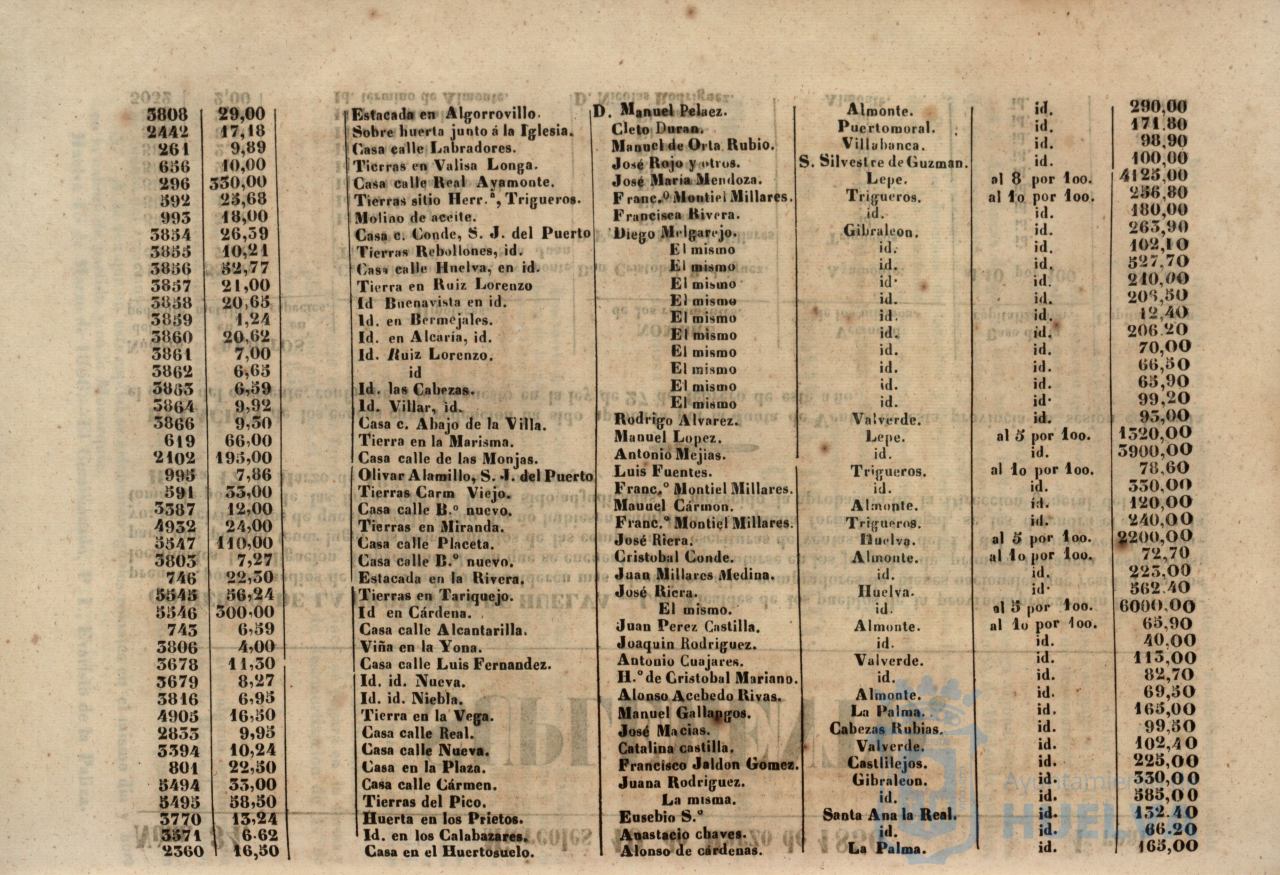 3808 29,00 Estacada en Algorrovillo. D. Manuel Pelaez. Almonte. id. 290,00
2442 17,18 Sobre huerta junto á la Iglesia. Cleto Duran. Puertomoral. id. 171,80
261 9,89 Casa calle Labradores. Manuel de Orta Rubio. Villabanca. id. 98,90
656 10,00 Tierras en Valisa Longa. José Rojo y otros. S. Silvestre de Guzman. id. 100,00
296 330,00 Casa calle Real Ayamonte. José Maria Mendoza. Lepe. al 8 por 1oo. 4125,00
592 25,68 Tierras sitio Herr.ª, Trigueros. Franc.º Montiel Millares. Trigueros. al 1o por 1oo. 256,80
993 18,00 Molino de aceite. Francisca Rivera. id. id. 180,00
3854 26,39 Casa c. Conde, S. J. del Puerto Diego Melgarejo. Gibraleon. id. 263,90
3855 10,21 Tierras Rebollones, id. El mismo id. id. 102,10
3856 52,77 Casa calle Huelva, en id. El mismo id. id. 527,70
3857 21,00 Tierra en Ruiz Lorenzo El mismo id. id. 210,00
3858 20,65 Id Buenavista en id. El mismo id. id. 206,50
3859 1,24 Id. en Bermejales. El mismo id. id. 12,40
3860 20,62 Id. en Alcaria, id. El mismo id. id. 206.20
3861 7,00 Id. Ruiz Lorenzo. El mismo id. id. 70,00
3862 6,65 id El mismo id. id. 66,50
3863 6,59 Id. las Cabezas. El mismo id. id. 65,90
3864 9,92 Id. Villar, id. El mismo id. id. 99,20
3866 9,30 Casa c. Abajo de la Villa. Rodrigo Alvarez. Valverde. id. 93,00
619 66,00 Tierra en la Marisma. Manuel Lopez. Lepe. al 5 por 1oo. 1320,00
2102 195,00 Casa calle de las Monjas. Antonio Mejias. id. id. 3900,00
995 7,86 Olivar Alamillo, S. J. del Puerto Luis Fuentes. Trigueros. al 1o por 1oo. 78,60
591 33,00 Tierras Carm Viejo. Franc.º Montiel Millares. id. id. 330,00
3387 12,00 Casa calle B.º nuevo. Manuel Cármon. Almonte. id. 120,00
4932 24,00 Tierras en Miranda. Franc.º Montiel Millares. Trigueros. id. 240,00
5547 110,00 Casa calle Placeta. José Riera. Huelva. al 5 por 1oo. 2200,00
3803 7,27 Casa calle B.º nuevo. Cristobal Conde. Almonte. al 1o por 1oo. 72,70
746 22,30 Estacada en la Rivera. Juan Millares Medina. id. id. 223,00
5545 56,24 Tierras en Tariquejo. José Riera. Huelva. id. 562.40
5546 300,00 Id en Cárdena. El mismo. id. al 5 por 1oo. 6000.00
743 6,59 Casa calle Alcantarilla. Juan Perez Castilla. Almonte. al 1o por 1oo. 65,90
3806 4,00 Viña en la Yona. Joaquin Rodriguez. id. id. 40,00
3678 11,30 Casa calle Luis Fernandez. Antonio Cuajares. Valverde. id. 113,00
3679 8,27 Id. id. Nueva. H.º de Cristobal Mariano. id. id. 82,70
3816 6,95 Id. id. Niebla. Alonso Acebedo Rivas. Almonte. id. 69,50
4905 16,50 Tierra en la Vega. Manuel Gallangos. La Palma. id. 165,00
2833 9,95 Casa calle Real. José Macias. Cabezas Rubias. id. 99,50
3394 10,24 Casa calle Nueva. Catalina castilla. Valverde. id. 102,40
801 22,50 Casa en la Plaza. Francisco Jaldon Gomez. Castlilejos. id. 225,00
5494 33,00 Casa calle Cármen. Juana Rodriguez. Gibraleon. id. 330,00
5495 58,50 Tierras del Pico. La misma. id. id. 585,00
3770 13,24 Huerta en los Prietos. Eusebio S.º Santa Ana la Real. id. 132.40
3571 6.62 Id. en los Calabazares. Anastacio chaves. id. id. 66.20
2360 16,50 Casa en el Huertosuelo. Alonso de cárdenas. La Palma. id. 165,00
Ayuntamiento
HUELVA